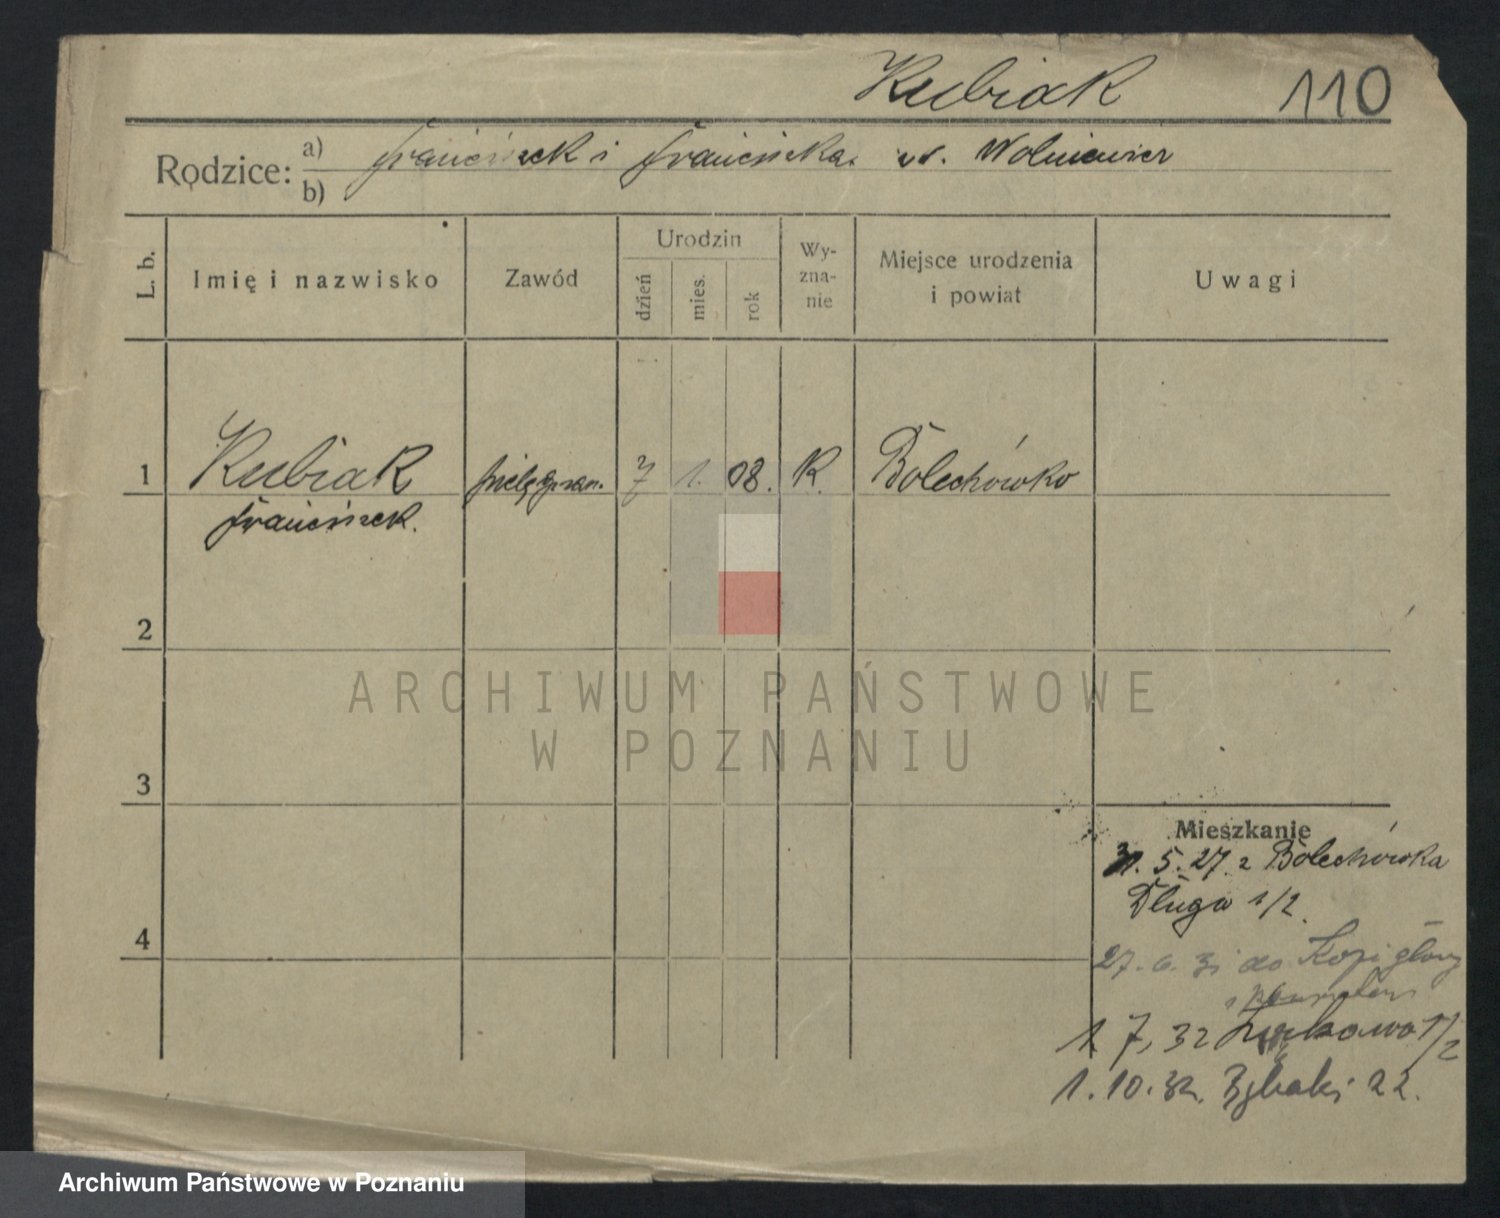 Kubiak 110
Rodzice: a) Franciszek i Franciszka ur. Wolniewicz
b)
L. b. Imię i nazwisko Zawód Urodzin dzień mies. rok Wy-zna-nie Miejsce urodzenia i powiat Uwagi
1 Kubiak pielęgniarz. 7 1. 08. K. Bolechówko
Franciszek.
2
ARCHIWUM PAŃSTWOWE
W POZNANIU
3
Mieszkanie
31. 5. 27. z Bolechówka
Długa 1/2.
4
27. 6. 31 do
1 7, 32 1/2
1. 10. 32. 22.
Archiwum Państwowe w Poznaniu